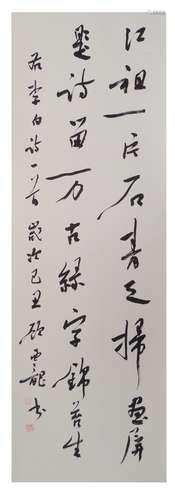 江祖一片石青天掃畫屏
題詩留万古綠字錦苔生
右李白詩一首 歲次己丑 顾亞龍书